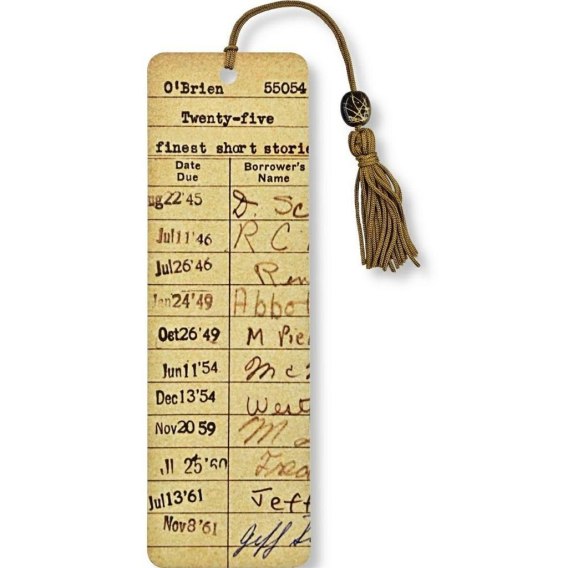 O'Brien 55054
Twenty-five
finest short storie
Date Due
Borrower's Name
ug22'45 D. Sc
Jul11'46 R C
Jul26'46 Ren
Jan24'49 Abbot
Oct26'49 M Pie
Jun11'54 Mc
Dec13'54 West
Nov20 59 M
Jl 25'60 Fred
Jul13'61 Jeff
Nov8'61 Jeff